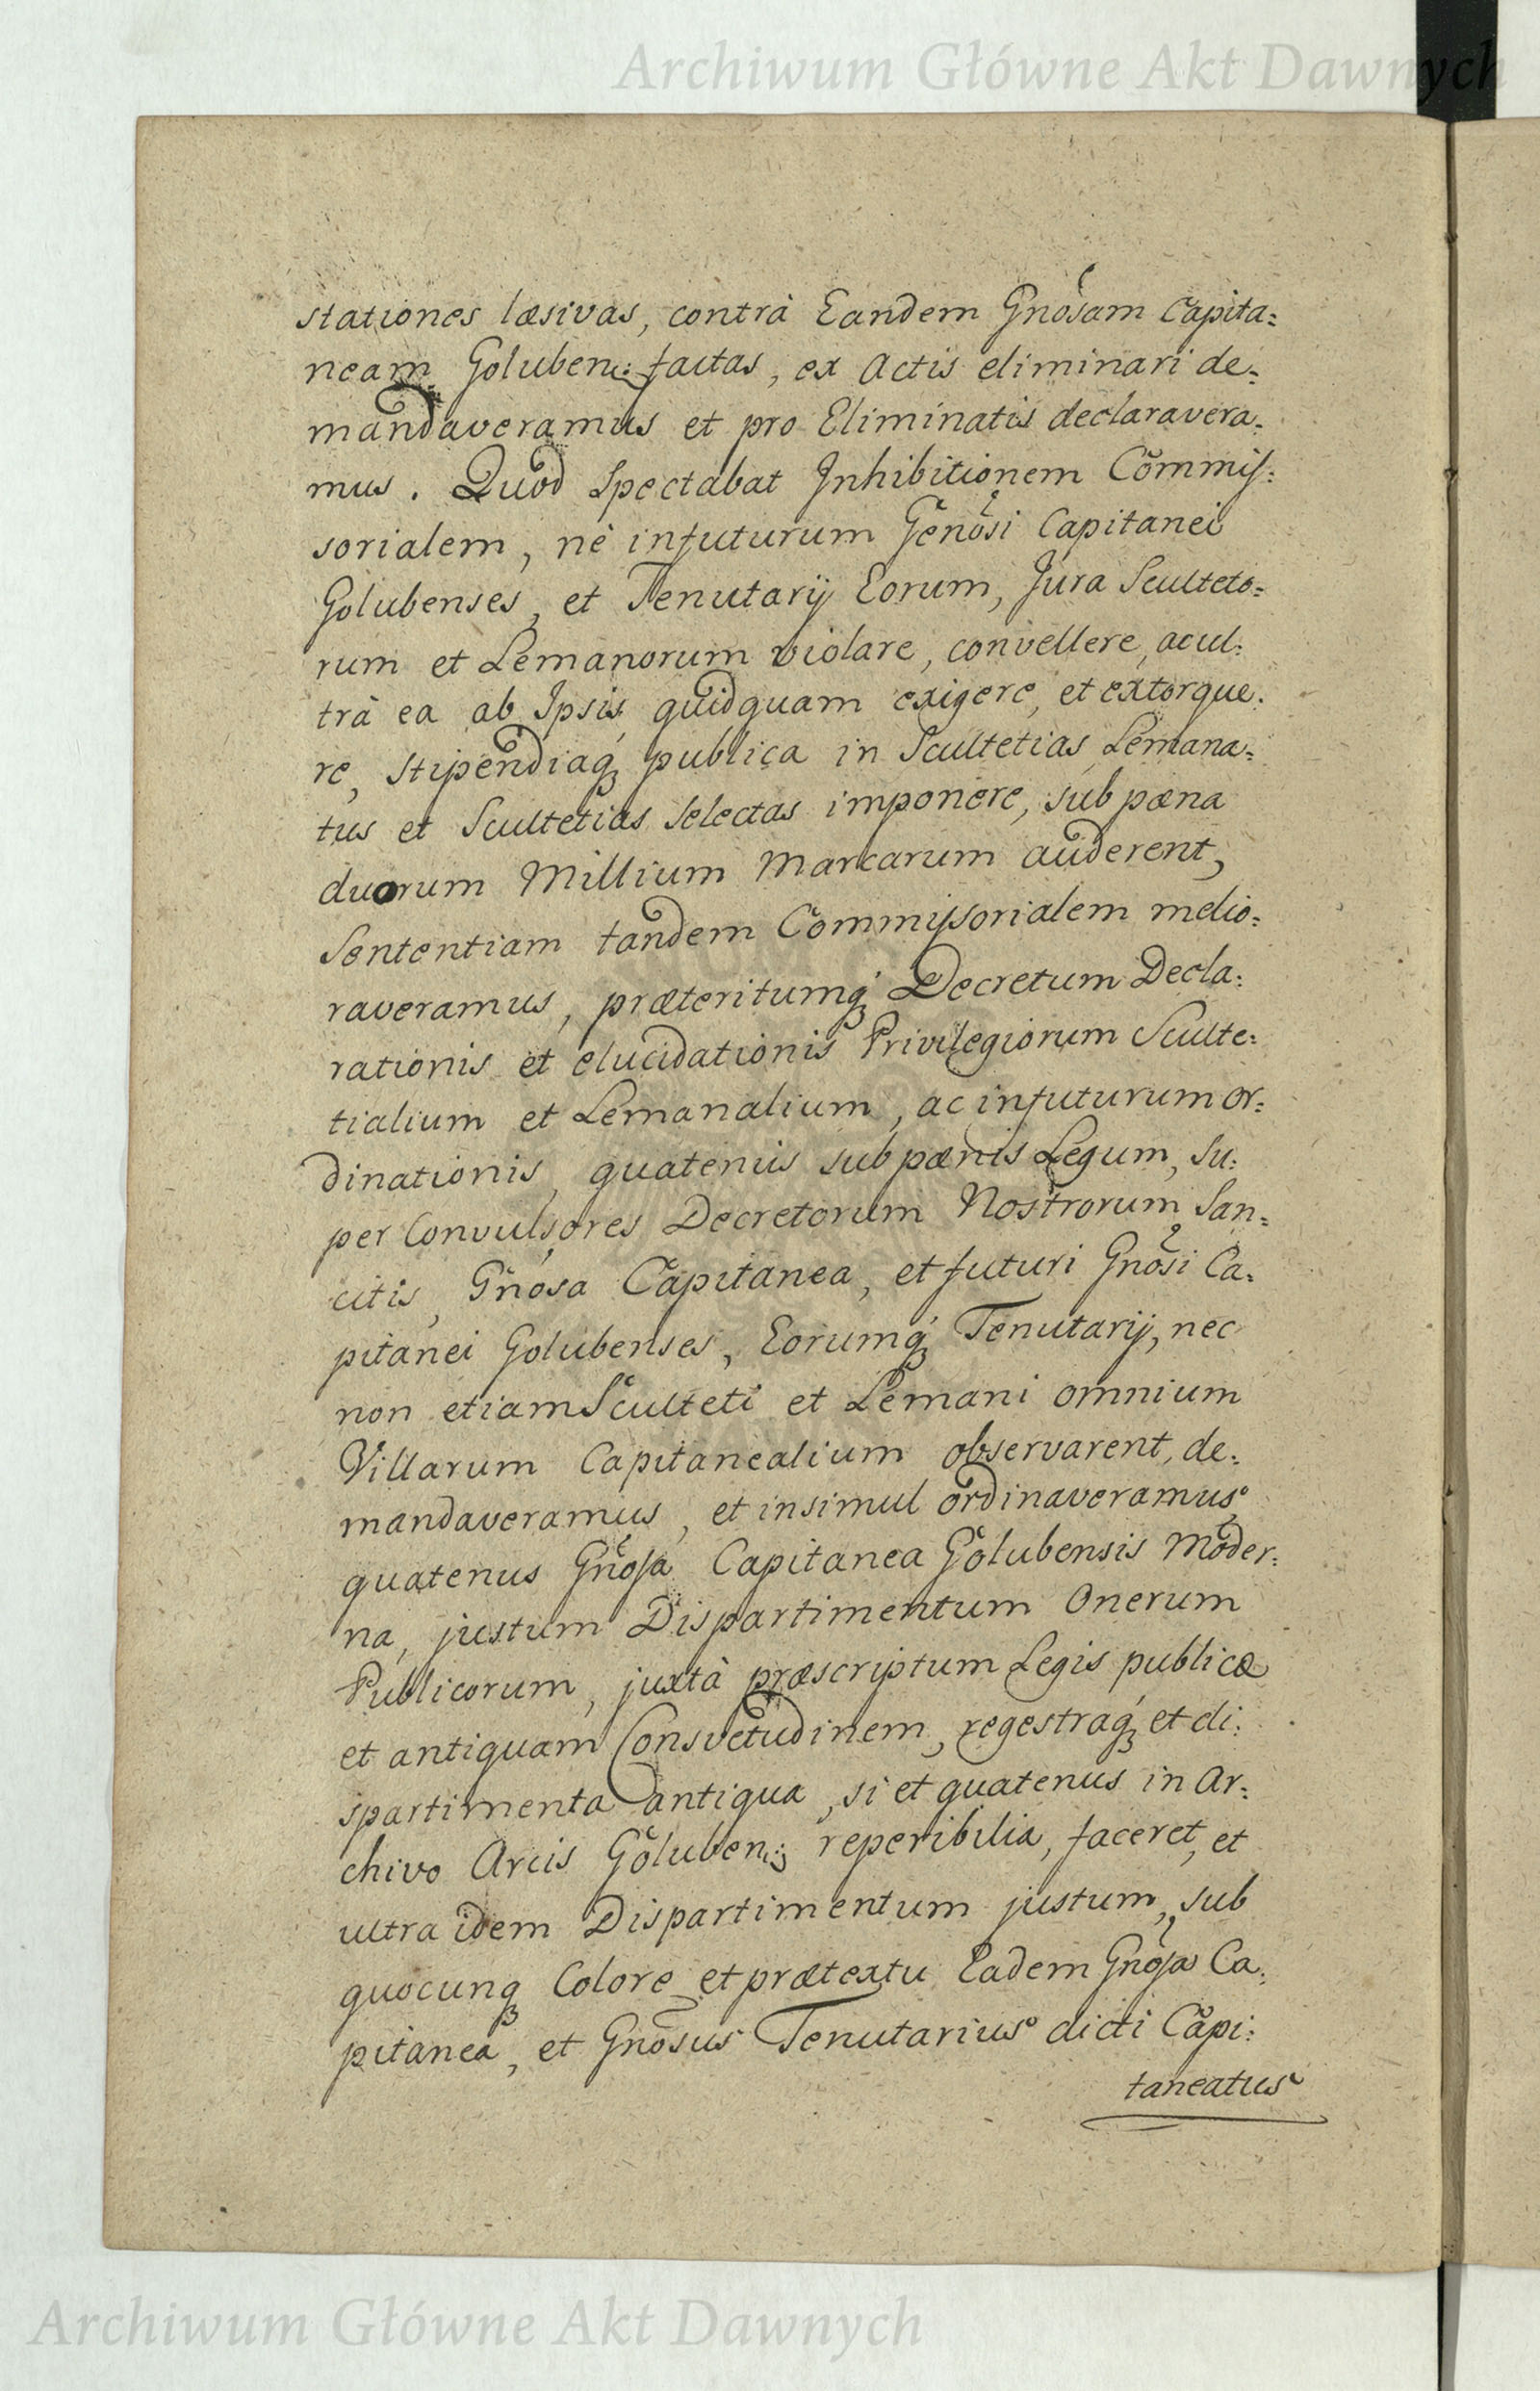 Archiwum Główne Akt Dawnych
stationes læsivas, contrà Eandem Gnosam Capita=
neam Goluben: factas, ex Actis eliminari de=
mandaveramus et pro Eliminatis declaravera=
mus. Quod Spectabat Inhibitionem Commis=
sorialem, nè infuturum Genosi Capitanei
Golubenses, et Tenutarij Eorum, Jura Sculteto=
rum et Lemanorum violare, convellere, ac ul=
trà ea ab Ipsis quidquam exigere, et extorque=
re, stipendiaq publica in Scultetias, Lemana=
tus et Scultetias Selectas imponere, sub pæna
duorum Millium Marcarum auderent,
Sententiam tandem Commissorialem melio=
raveramus, præteritumq Decretum Decla=
rationis et elucidationis Privilegiorum Sculte=
tialium et Lemanalium, ac infuturum or=
dinationis, quatenus sub pænis Legum, Su=
per Convulsores Decretorum Nostrorum San=
citis, Gnosa Capitanea, et futuri Gnosi Ca=
pitanei Golubenses, Eorumq Tenutarij, nec
non etiam Sculteti et Lemani omnium
Villarum Capitanealium observarent, de=
mandaveramus, et insimul ordinaveramus,
quatenus Gnosa Capitanea Golubensis Moder=
na, justum Dispartimentum Onerum
Publicorum, juxtà præscriptum Legis publicæ
et antiquam Consvetudinem, regestraq et di=
spartimenta antiqua, si et quatenus in Ar=
chivo Arcis Goluben: reperibilia, faceret, et
ultra idem Dispartimentum justum, sub
quocunq Colore et prætextu Eadem Gnosa Ca=
pitanea, et Gnosus Tenutarius dicti Capi=
taneatus
Archiwum Główne Akt Dawnych